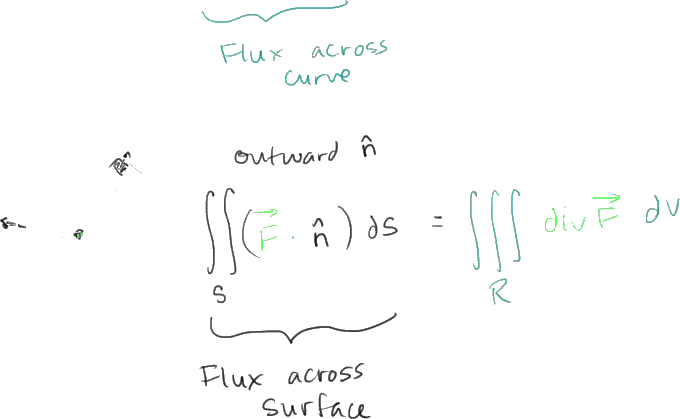 Flux across
curve
outward n̂
∬_S (F⃗ · n̂) dS = ∭_R div F⃗ dV
Flux across
surface